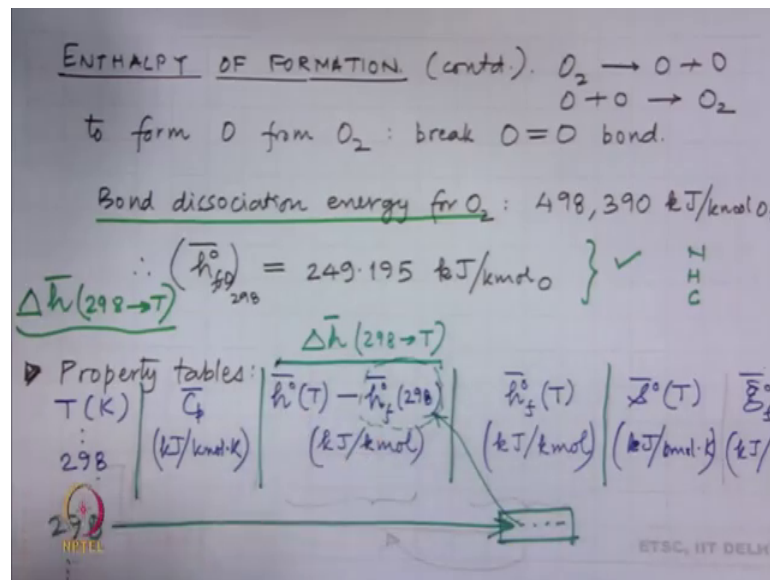 ENTHALPY OF FORMATION. (contd.). O₂ → O + O
O + O → O₂
to form O from O₂ : break O=O bond.
Bond dissociation energy for O₂ : 498,390 kJ/kmol O
∴ (h̄°f,O)298 = 249.195 kJ/kmol O } ✓ N
H
C
Δh̄(298→T)
Δh̄(298→T)
▶ Property tables:
T(K) | C̄p | h̄°(T) – h̄°f(298) | h̄°f(T) | s̄°(T) | ḡ°f
⋮ (kJ/kmol·K) | (kJ/kmol) | (kJ/kmol) | (kJ/kmol·K) | (kJ/
298
298 → ....
⋮
NPTEL
ETSC, IIT DELH